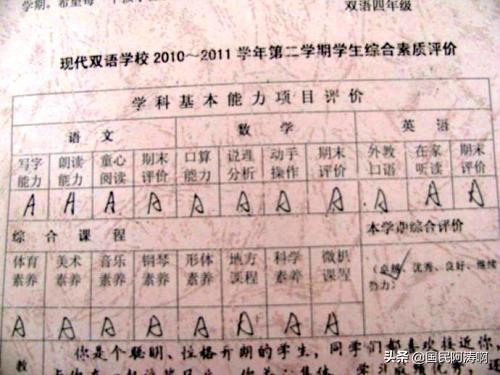 学期。希望每
双语四年级
现代双语学校2010～2011学年第二学期学生综合素质评价
学科基本能力项目评价
语文 数学 英语
写字能力 朗读能力 童心阅读 期末评价 口算能力 说理分析 动手操作 期末评价 外教口语 在家听读 期末评价
A A A A A A A A A A A
综合课程 本学期综合评价
体育素养 美术素养 音乐素养 钢琴素养 形体素养 地方课程 科学素养 微机课程 (卓越、优秀、良好、继续努力)
A A A A A A A A
你是个聪明、性格开朗的学生，同学们都喜欢接近你，
学习成绩优秀，
头条 @国民阿涛啊